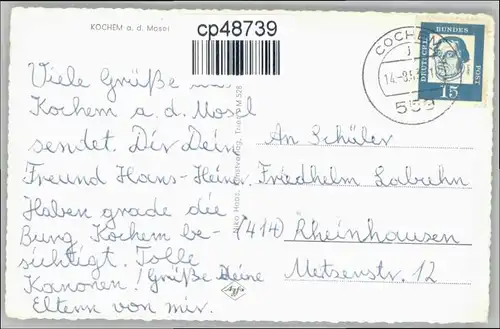 KOCHEM a. d. Mosel
cp48739
COCHEM
DEUTSCHE
BUNDES
POST
15
Viele Grüße
Kochem a. d. Mosel
sendet. Dir Dein
Freund Hans-Heiner.
Haben grade die
Burg, Kochem be-
sichtigt. Tolle
Kanonen! Grüße Deine
Eltern von mir.
Agfa
An Schüler
Friedhelm Labuhn
(414) Rheinhausen
Metzenstr. 12